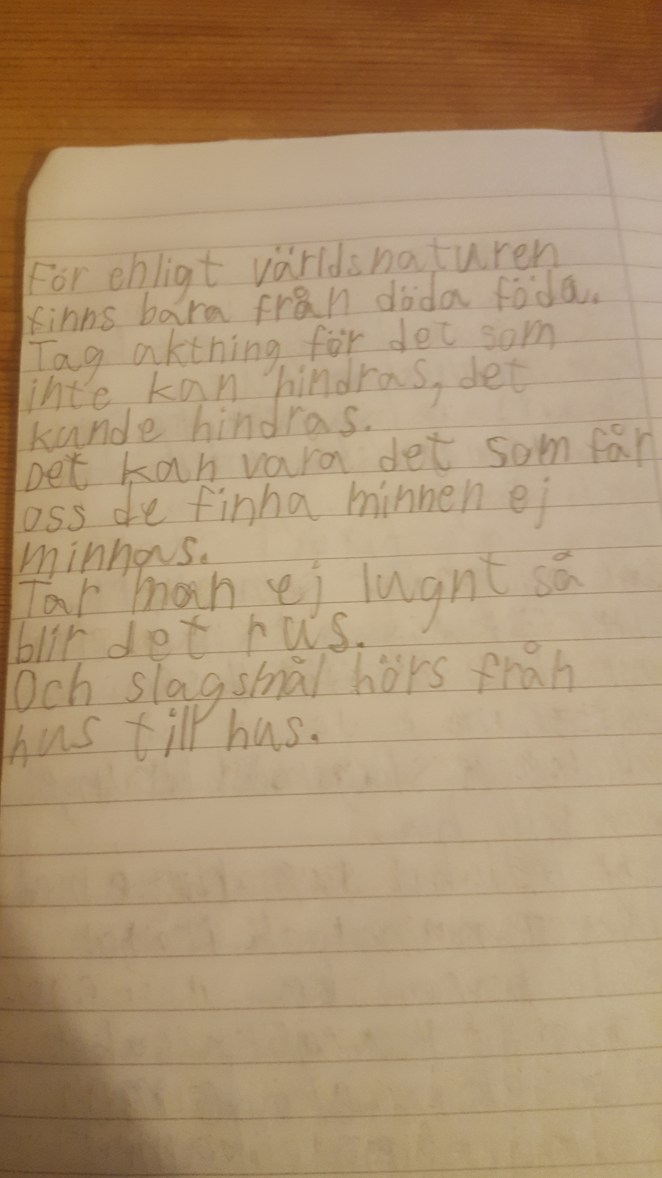 För enligt världsnaturen
finns bara från döda föda.
Tag akthing för det som
inte kan hindras, det
kunde hindras.
Det kan vara det som får
oss de finna minnen ej
minnas.
Tar man ej lugnt så
blir det rus.
Och slagsmål hörs från
hus till hus.